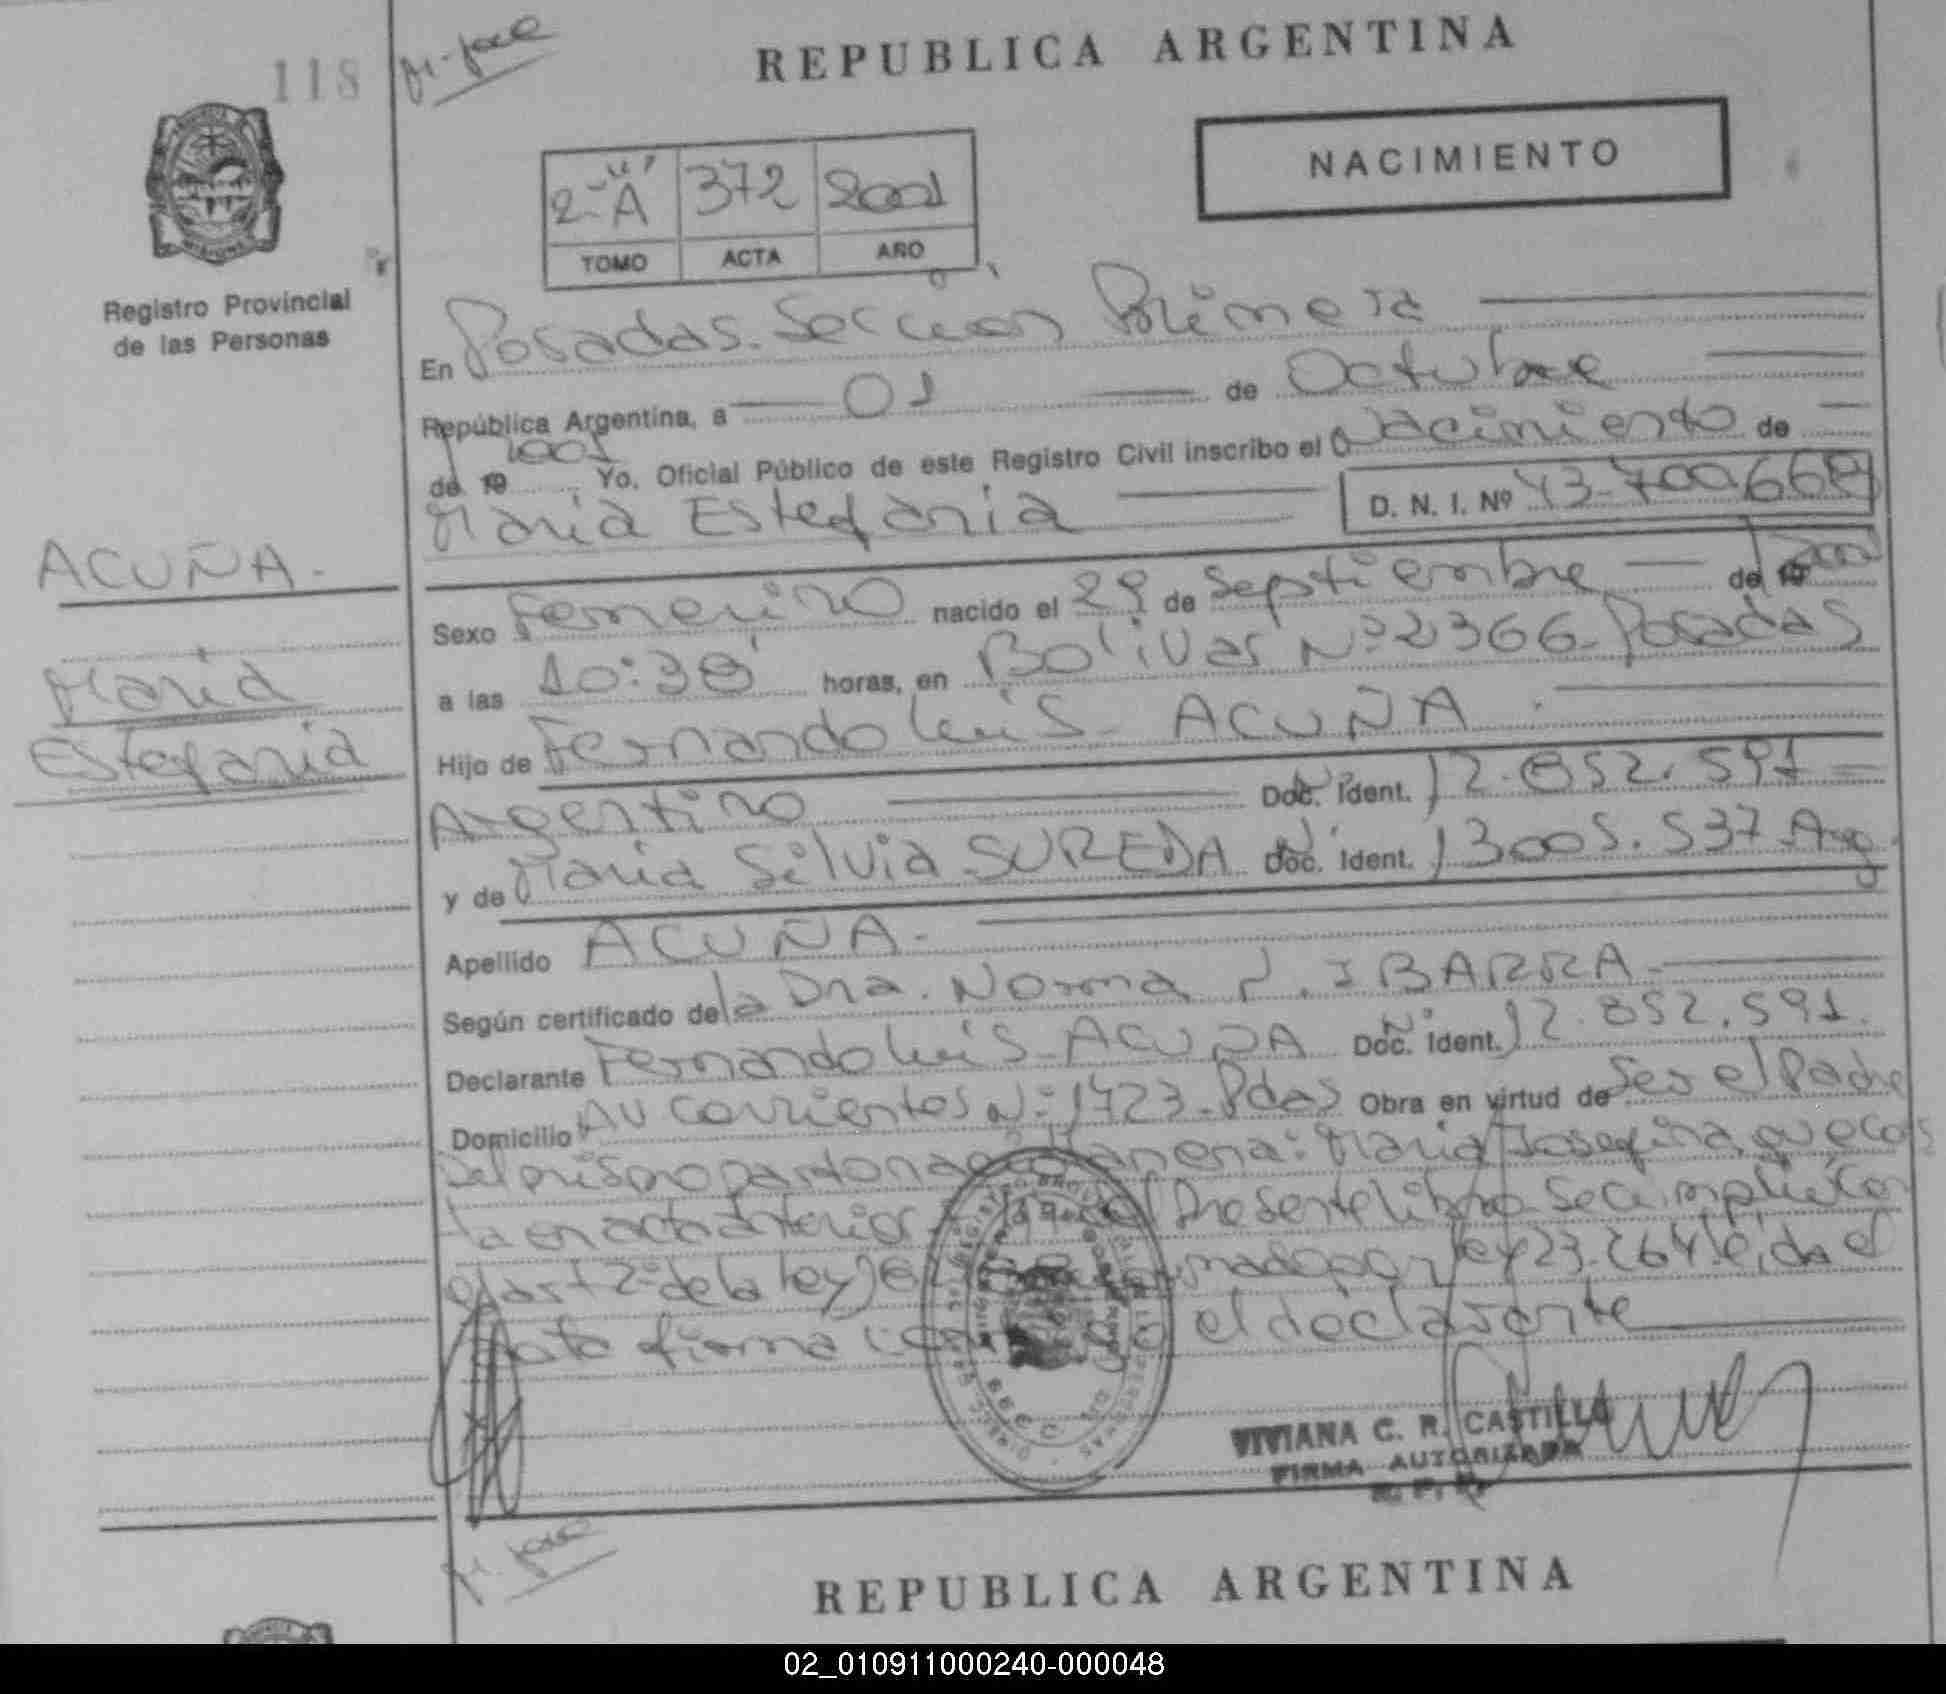 118
REPUBLICA ARGENTINA
NACIMIENTO
2-"A" 372 2001
TOMO ACTA AÑO
Registro Provincial
de las Personas
En Posadas. Sección Primera
República Argentina, a 01 de Octubre
de 19 2001 Yo, Oficial Público de este Registro Civil inscribo el Nacimiento de
María Estefania D. N. I. Nº 43.700.668
ACUÑA.
María
Estefania
Sexo Femenino nacido el 29 de Septiembre de 19 2001
a las 10:38 horas, en Bolivar Nº 2366-Posadas
Hijo de Fernando Luis ACUÑA
Argentino Doc. Ident. 12.852.591
y de María Silvia SUREDA Doc. Ident. 13005.537 Arg.
Apellido ACUÑA.
Según certificado de la Dra. Norma IBARRA
Declarante Fernando Luis ACUÑA Doc. Ident. 12.852.591.
Domicilio AV Corrientes Nº 1723-Pdas Obra en virtud de Ser el Padre
Del mismo parto nació María Josefina, que cons
ta en acta anterior del Presente libro Se cumplió con
el art 2º de la ley por ley 23.264 leida el
acta firma el declarante
VIVIANA C. R. CASTILLO
FIRMA AUTORIZADA
REPUBLICA ARGENTINA
02_010911000240-000048